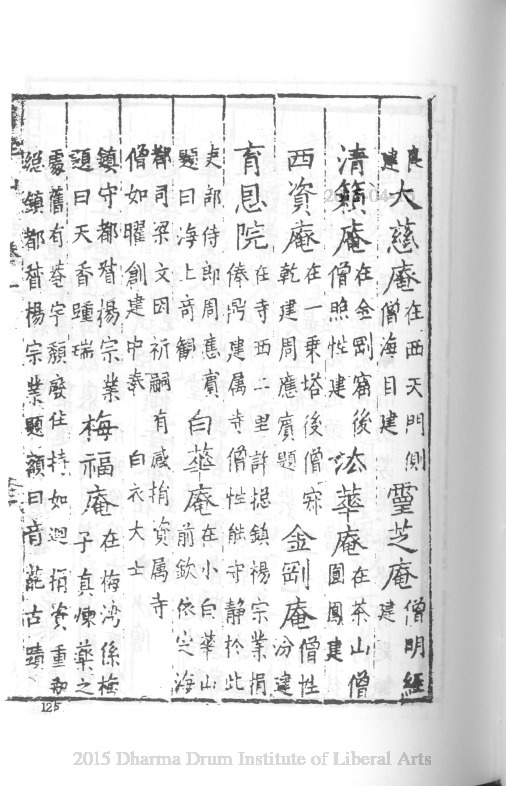 良建大慈庵在西天門側僧海目建靈芝庵僧明經建
清籟庵在金剛窟後僧照性建法華庵在茶山僧圓鳳建
西資庵在一乗塔後僧寂乾建周應賓題金剛庵僧性汾建
育恩院在寺西二里許摠鎮楊宗業捐俸剏建属寺僧性能守静於此
吏部侍郎周應賓題曰海上竒觀白華庵在小白華山前欽依定海
都司梁文因祈嗣有感捐資属寺僧如曜創建中奉白衣大士
鎮守都督揚宗業題曰天香踵瑞梅福庵在梅湾係梅子真煉藥之
處舊有菴宇頽廢住持如迥捐資重剏総鎮都督楊宗業題額曰音古蹟
125
2015 Dharma Drum Institute of Liberal Arts